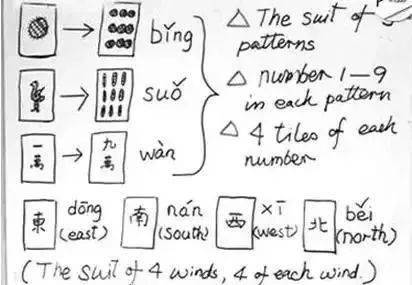 bǐng
suǒ
一萬 九萬 wàn
△ The suit of
patterns
△ number 1-9
in each pattern
△ 4 tiles of each
number
東 dōng (east) 南 nán (south) 西 xī (west) 北 běi (north)
(The suit of 4 winds, 4 of each wind.)